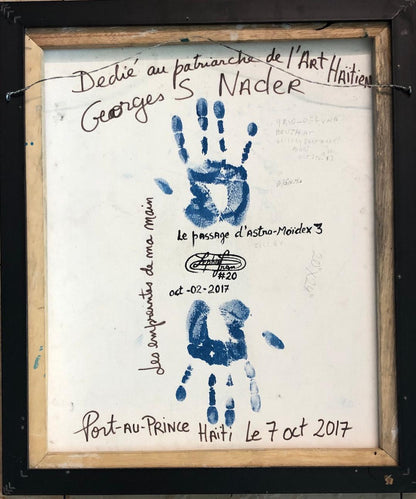 Dedié au patriarche de l'Art Haïtien
Georges S Nader
Les empreintes de ma main
Le passage d'Astro-Moïdex 3
#20
oct-02-2017
Port-au-Prince Haïti Le 7 oct 2017